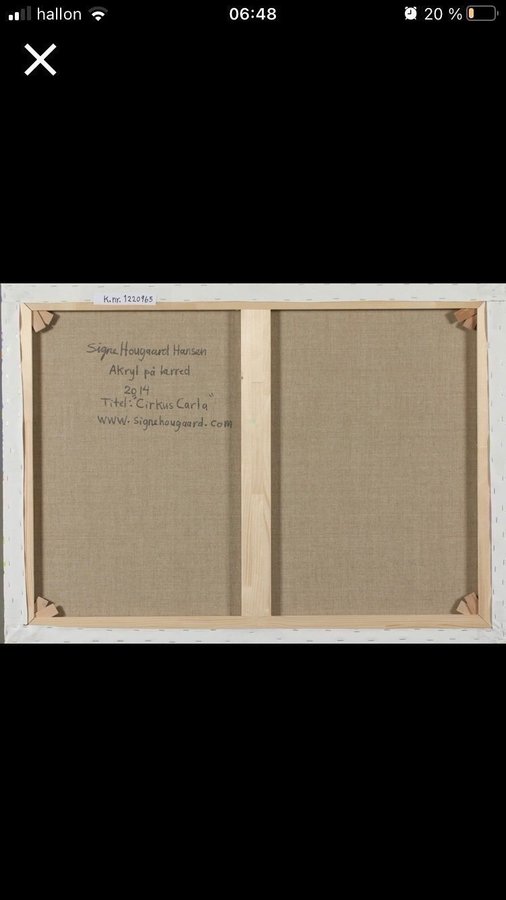 hallon 06:48 20 %
K.nr. 1220965
Signe Hougaard Hansen
Akryl på lærred
2014
Titel: "Cirkus Carla"
www.signehougaard.com